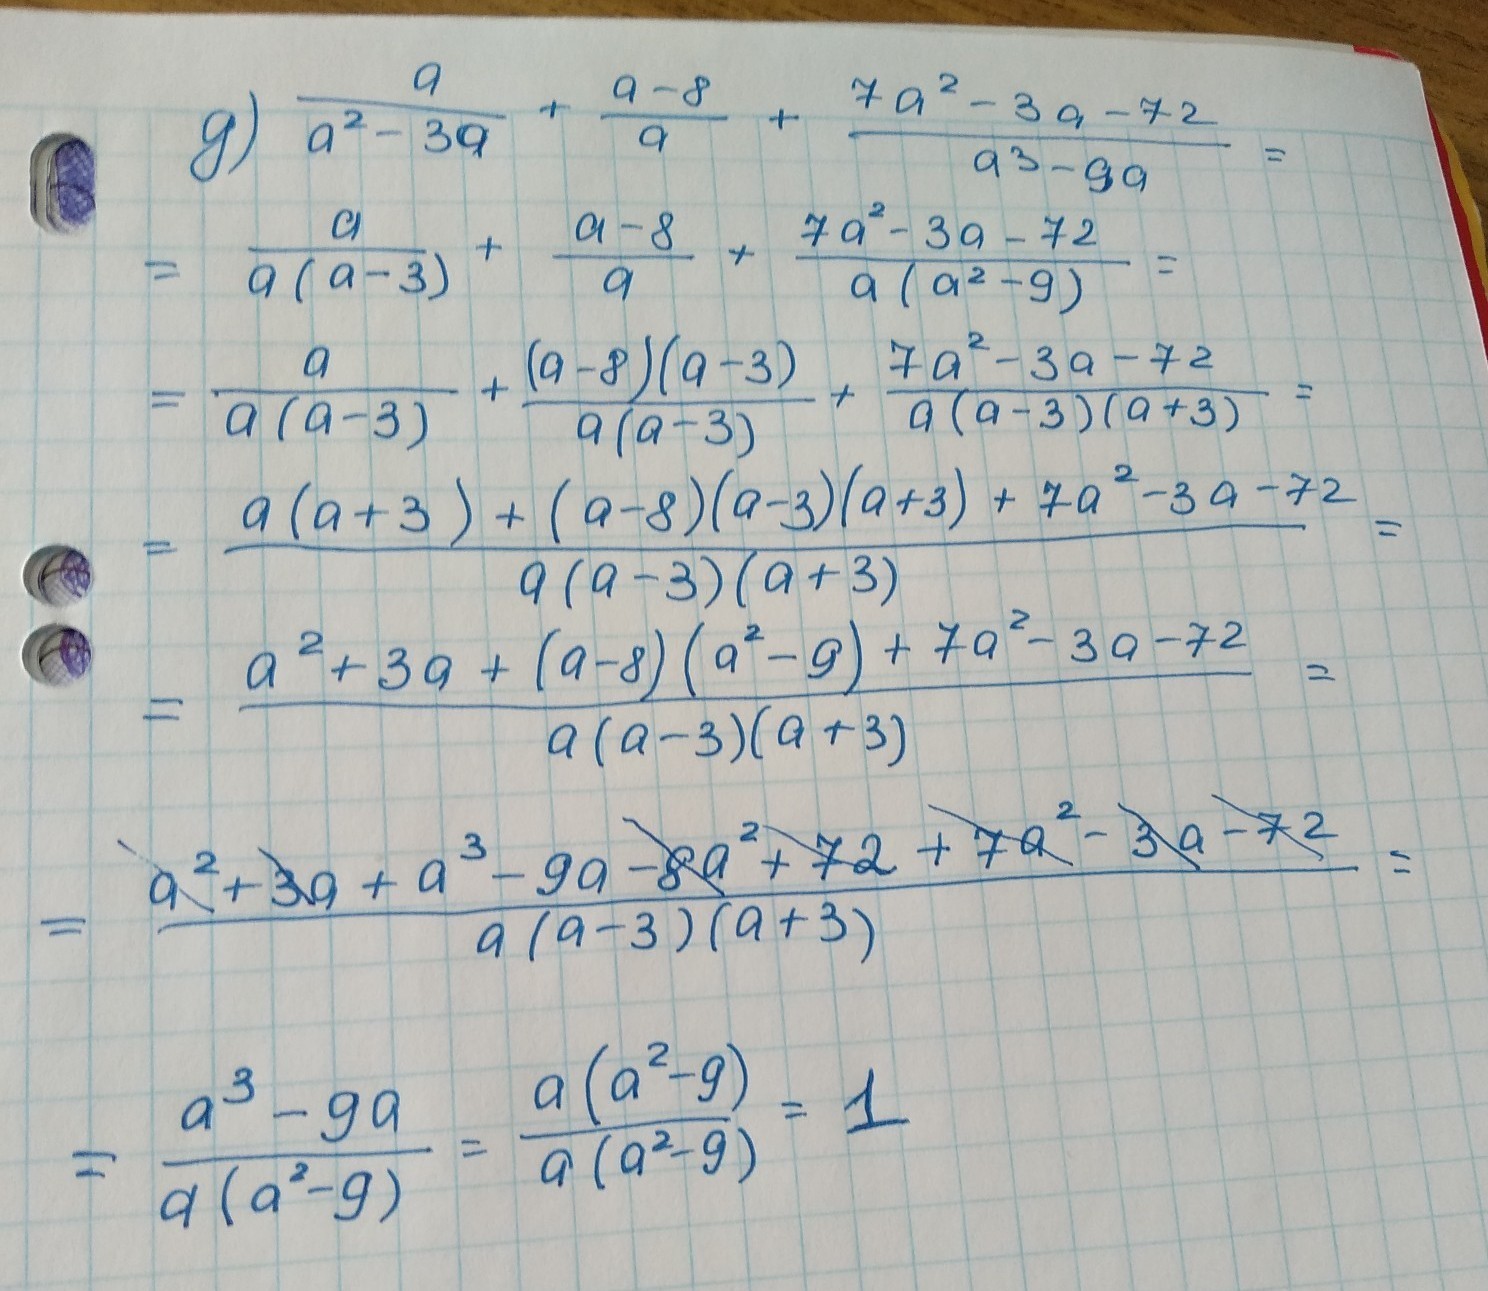 g) a/(a² - 3a) + (a - 8)/a + (7a² - 3a - 72)/(a³ - 9a) =
= a/(a(a - 3)) + (a - 8)/a + (7a² - 3a - 72)/(a(a² - 9)) =
= a/(a(a - 3)) + ((a - 8)(a - 3))/(a(a - 3)) + (7a² - 3a - 72)/(a(a - 3)(a + 3)) =
= (a(a + 3) + (a - 8)(a - 3)(a + 3) + 7a² - 3a - 72)/(a(a - 3)(a + 3)) =
= (a² + 3a + (a - 8)(a² - 9) + 7a² - 3a - 72)/(a(a - 3)(a + 3)) =
= (a² + 3a + a³ - 9a - 8a² + 72 + 7a² - 3a - 72)/(a(a - 3)(a + 3)) =
= (a³ - 9a)/(a(a² - 9)) = (a(a² - 9))/(a(a² - 9)) = 1